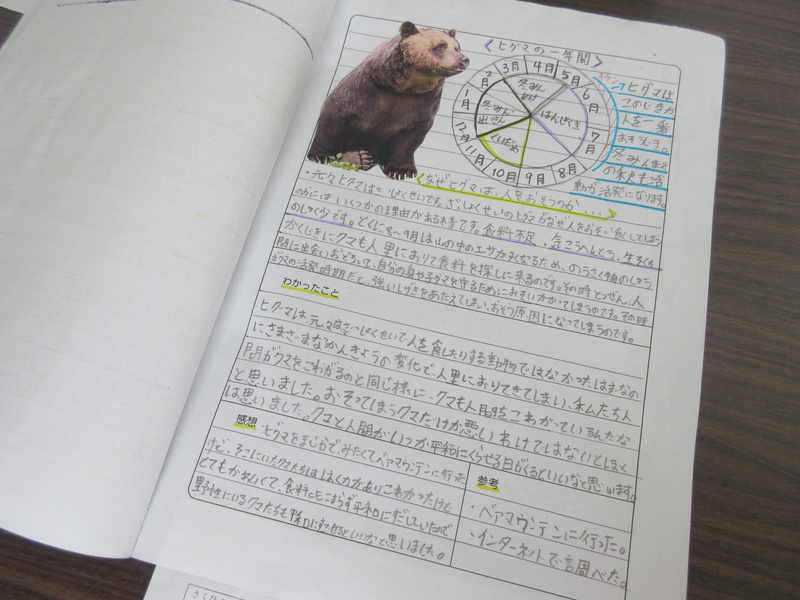 ヒグマの一年間
3月
4月
5月
6月
7月
8月
9月
10月
11月
12月
1月
2月
冬みん
あけ
はんしょくき
くいだめ
冬みん
出さん
ヒグマは
このじきが
人を一番
おそうじき。
冬みんまえ
の秋も活
動が活発になります。
なぜヒグマは、人をおそうのか...
・元々ヒグマはざっしょくせいです。ざっしょくせいのヒグマがなぜ人をおそい食してしまう
のかにはいくつかの理由がある様です。食料不足、気こうへんどう、生そく
のしゅく少です。とくに8〜9月は山の中のエサが
かくじきにクマも人里におりて食料を探しに来るのです。その時とつぜん、人
間に出会いおどろいて、自らの身や子グマを守るためにおそいかかってしまうのです。その時
がクマの活発時期だと、強いしげきをあたえてしまい、おそう原因になってしまうのです。
わかったこと
ヒグマは、元々はざっしょくせいで人を食したりする動物ではなかったはずなの
にさまざまなかんきょうの変化で、人里におりてきてしまい、私たち人
間がクマをこわがるのと同じ様に、クマも人間をこわがっているんだな
と思いました。おそってしまうクマだけが悪いわけではないとぼく
は思いました。クマと人間がいつか平和にくらせる日がくるといいなと思います。
感想
ヒグマをまじかで、みたくてベアマウンテンに行った
けど、そこにいたクマたちははく力がありこわかったけど
とてもかわいくて、食料にもこまらず平和にくらしていたので
野性にいるクマたちも平和にすごせるといいなと思いました。
参考
・ベアマウンテンに行った。
・インターネットで調べた。